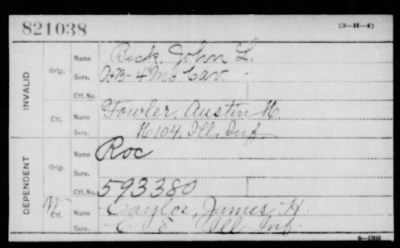 821038
(3-H-4)
INVALID
Orig.
Name
Beck, John L.
Serv.
A&B-4 Mo Cav
Ctf. No.
Ctf.
Name
Fowler, Austin H.
Serv.
K 104. Ill. Inf.
DEPENDENT
Orig.
Name
Roc
Serv.
Ctf. No.
593380
W
Ctf.
Name
Caylor, James H.
Serv.
Ill. Inf.